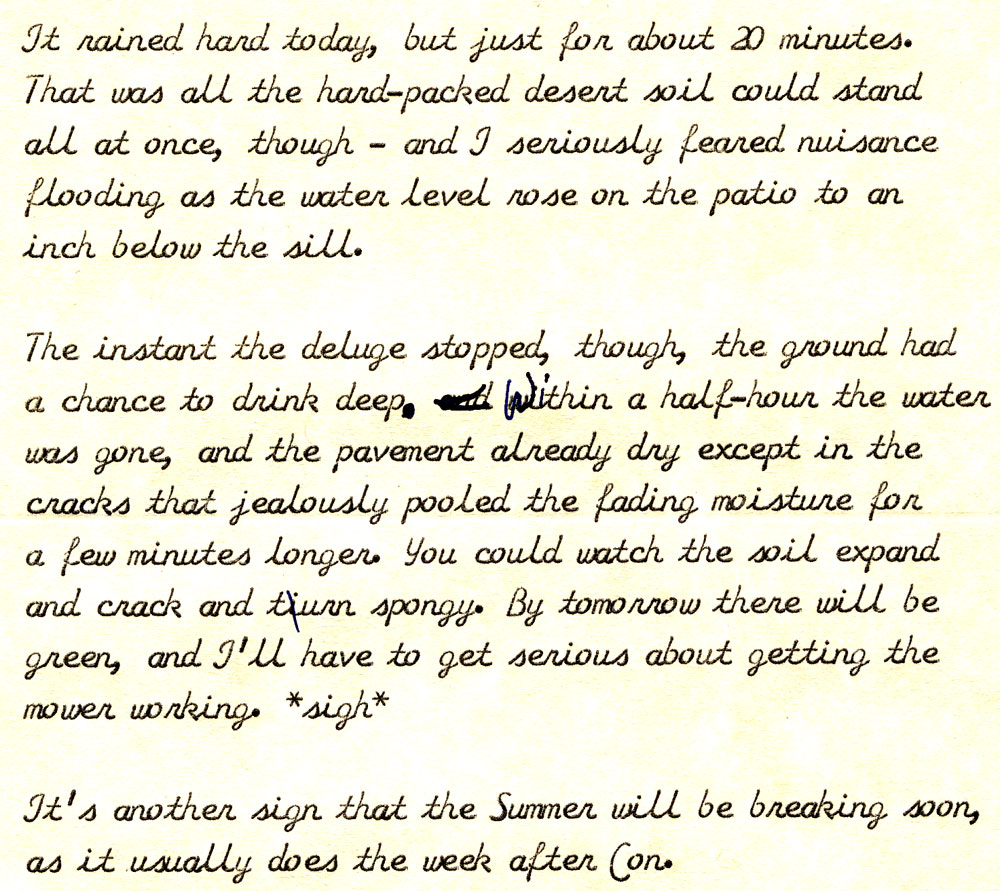 It rained hard today, but just for about 20 minutes.
That was all the hard-packed desert soil could stand
all at once, though - and I seriously feared nuisance
flooding as the water level rose on the patio to an
inch below the sill.
The instant the deluge stopped, though, the ground had
a chance to drink deep. and Within a half-hour the water
was gone, and the pavement already dry except in the
cracks that jealously pooled the fading moisture for
a few minutes longer. You could watch the soil expand
and crack and turn spongy. By tomorrow there will be
green, and I'll have to get serious about getting the
mower working. *sigh*
It's another sign that the Summer will be breaking soon,
as it usually does the week after Con.